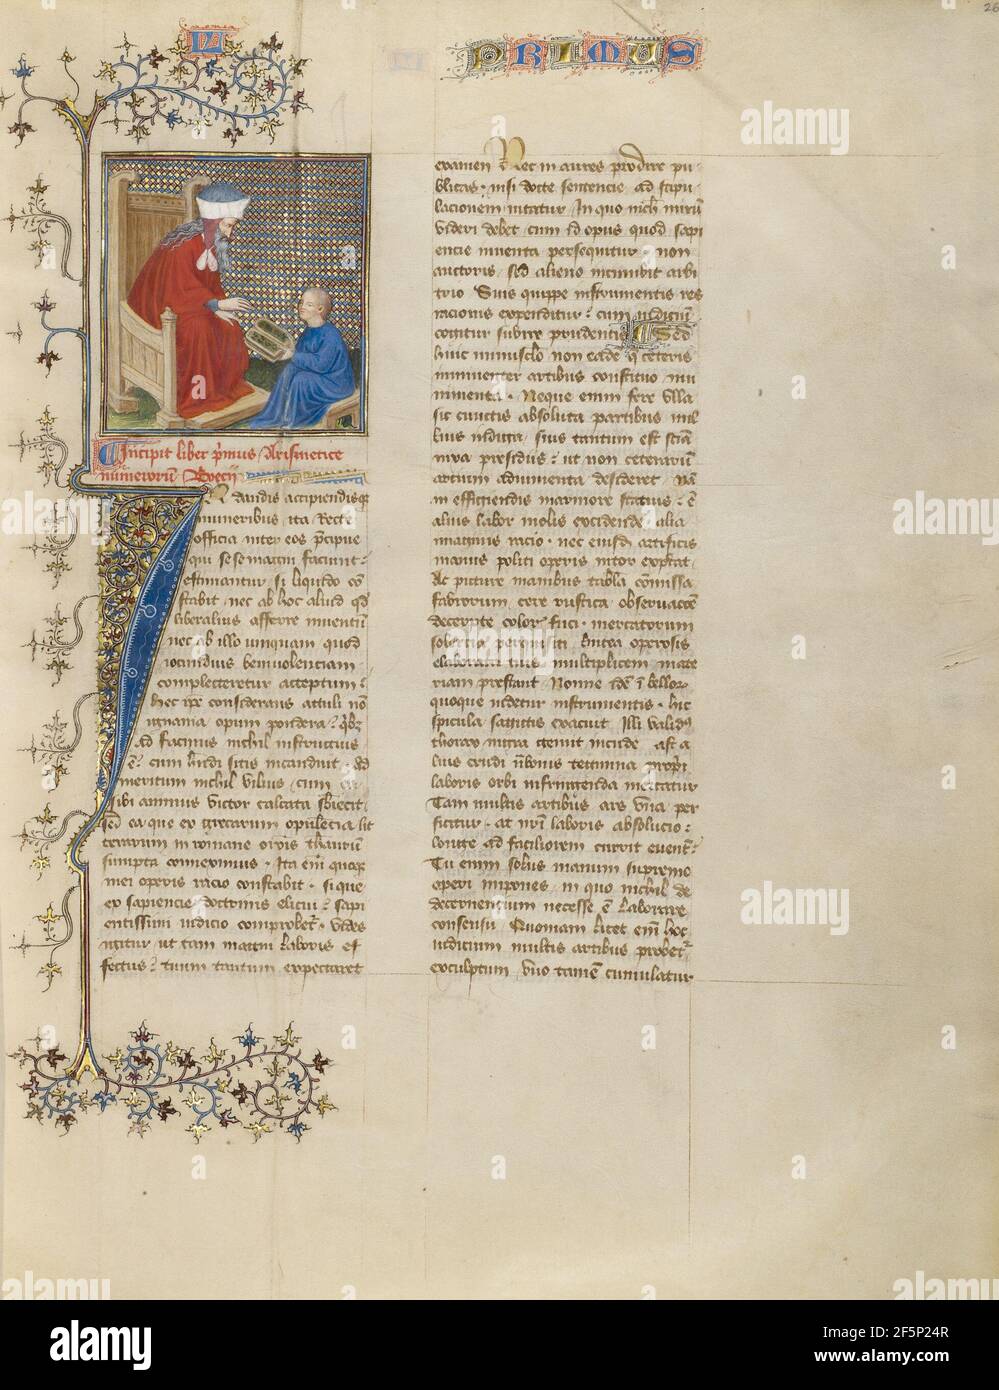 26
PRIMUS
Incipit liber p̄mus Arismetice
numerorū Boecij
In dandis accipiendisq̄
muneribus ita Recte
officia inter eos p̄cipue
qui sese magni faciunt
estimantur si liquido cō
stabit nec ab hoc aliud qd
liberalius afferre inventū
nec ab illo umquam quod
iocundius benivolenciam
complecteretur acceptum
hec ip̄e considerans attuli nō
ignania opum pondera
Ad facinus nichil instructius
ē cum habendi sitis incanduit Ad
meritum nichil vilius cum ea
sibi animus victor calcata
sed ea que ex grecarum opulētia lit
terarum in romane orbis
sumpta conveximus Ita em̄ quoq
mei operis racio constabit si que
ex sapiencie doctrinis elicui sapi
entissimi iudicio comprobet Vides
igitur ut tam magni laboris ef
fectus tuum tantum expectaret
examen Nec in aures prodire pu
blicas nisi docte sentencie ad stipu
lacionem nitatur In quo nichil mirū
videri debet cum id opus quod sapi
encie inventa persequitur non
auctoris sed alieno incumbit arbi
trio Suis quippe instrumentis res
racionis expenditur cum iudiciū
cogitur subire prudentis Sed
huic munusculo non eadē q̄ ceteris
imminenter artibus constituo mu
nimenta Neque enim fere ulla
sic cunctis absoluta partibus nul
lius indiga suis tantum est sciā
nixa presidiis ut non ceterarū
artium adiumenta desideret Nā
in effigiendis marmore statuis ē
alius labor molis excidende alia
imaginis racio nec eiusdē artificis
manus politi operis nitor expectat
At picture manibus tabla cōmissa
fabrorum cere rustica observacōe
decerpte colorū fuci mercatorum
solercia perquisiti lintea operosis
elaborata multiplicem mate
riam prestant Nonne idē ī bellorū
quoque videtur instrumentis hic
spicula sagittis exacuit Illi validus
thorax nigra gemit incude ast a
lius crudi umbonis tegmina propri
laboris orbi infringenda mercatur
Tam multis artibus ars una per
ficitur at nri laboris absolucio
longe ad faciliorem currit eventū
Tu enim solus manum supremo
operi impones in quo nichil de
decernencium necesse ē laborare
consensu Quoniam licet em̄ hoc
iudicium multis artibus probet
exculptum uno tamē cumulatur
alamy
Image ID: 2F5P24R
www.alamy.com